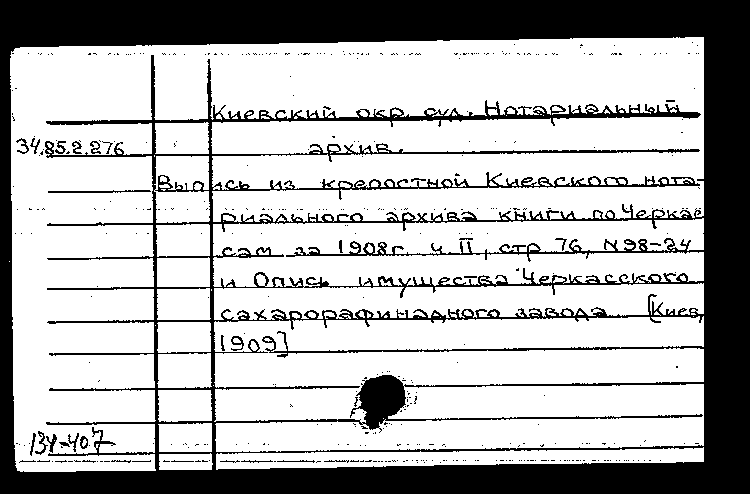 Киевский окр. суд. Нотариальный
34.85.2.276 архив.
Выпись из крепостной Киевского нота-
риального архива книги по Черкас
сам за 1908г. ч. II, стр 76, N 98-24
и Опись имущества Черкасского
сахарорафинадного завода [Киев,
1909]
134-407